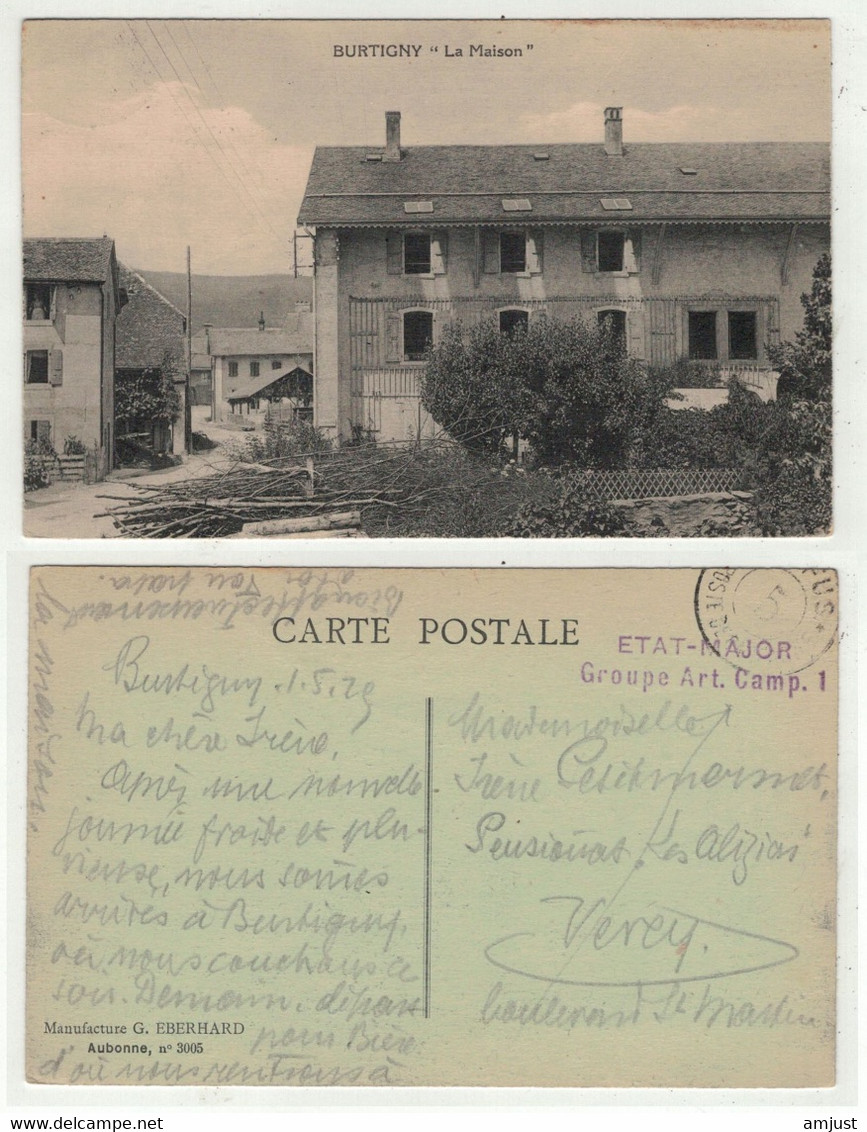 BURTIGNY “La Maison”
Bien affectueusement
à toi Ton papa.
CARTE POSTALE
ETAT-MAJOR
Groupe Art. Camp. 1
Burtigny. 1.5.29
Ma chère Irène,
Après une nouvelle
journée froide et plu-
vieuse, nous sommes
arrivés à Burtigny,
où nous couchons ce
soir. Demain, départ
pour Bière
d'où nous rentrons à
la maison.
Mademoiselle
Irène Petitmermet,
Pensionnat "Les Aliziers"
Vevey.
boulevard St Martin
Manufacture G. EBERHARD
Aubonne, nº 3005
amjust